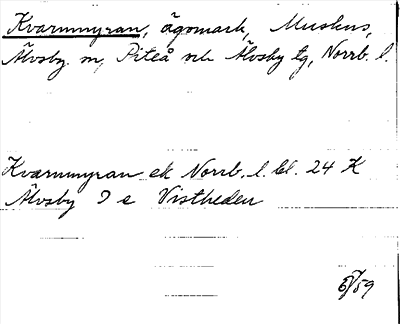 Kvarnmyran, ägomark, Muskus,
Älvsby sn, Piteå och Älvsby tg, Norrb. l.
Kvarnmyran ek Norrb. l. bl. 24 K
Älvsby 9 e Vistheden
59